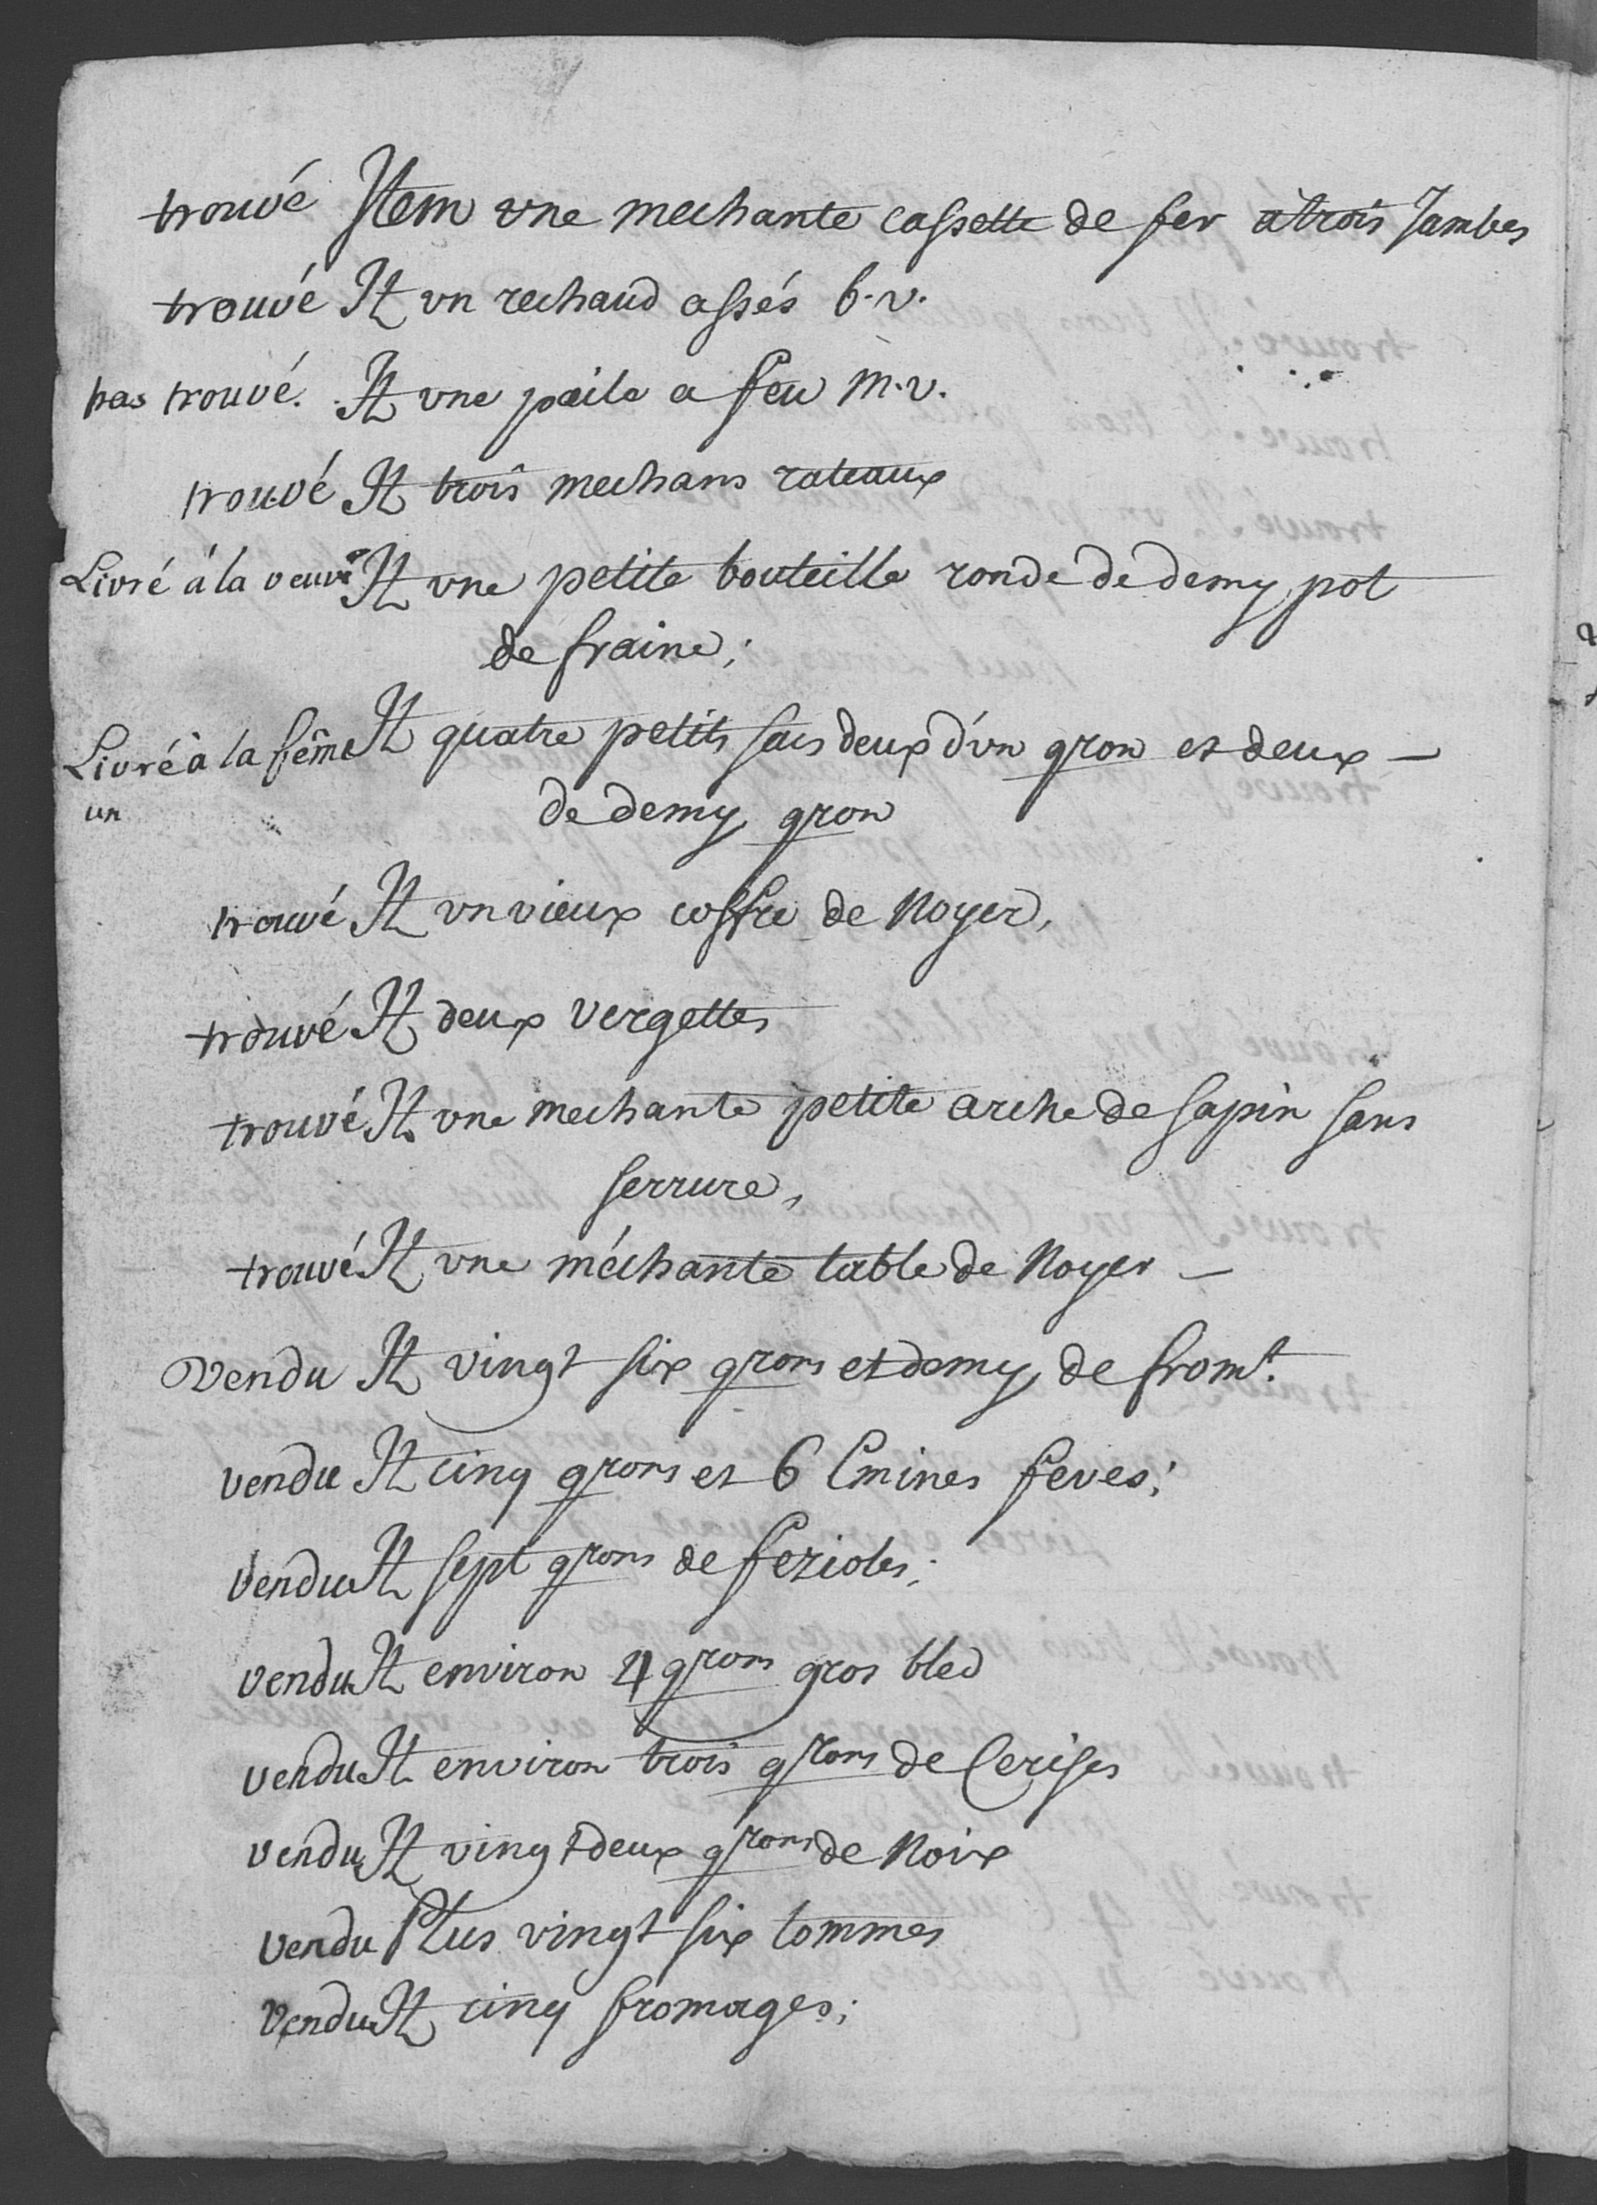 trouvé Jtem vne mechante cassette de fer atrois Jambes
trouvé Jt vn rechaud assés b.v.
pas trouvé. Jt vne paile a feu m.v.
trouvé Jt trois mechans rateaux
Livré à la veuve Jt vne petite bouteille ronde de demy pot
de fraine;
Livré à la fême Jt quatre petits sacs deux d'vn qron et deux —
un de demy qron
trouvé Jt vn vieux coffre de Noyer,
trouvé Jt deux vergettes
trouvé Jt vne mechante petite arche de sapin sans
serrure,
trouvé Jt vne méchante table de Noyer —
Vendu Jt vingt six qrons et demy de from.t
vendu Jt cinq qrons et 6 Emines feves;
vendu Jt sept qrons de fezioles;
vendu Jt environ 4 qrons gros bled
vendu Jt environ trois qrons de Cerises
vendu Jt vingt deux qrons de Noix
vendu Plus vingt six tommes
vendu Jt cinq fromages;